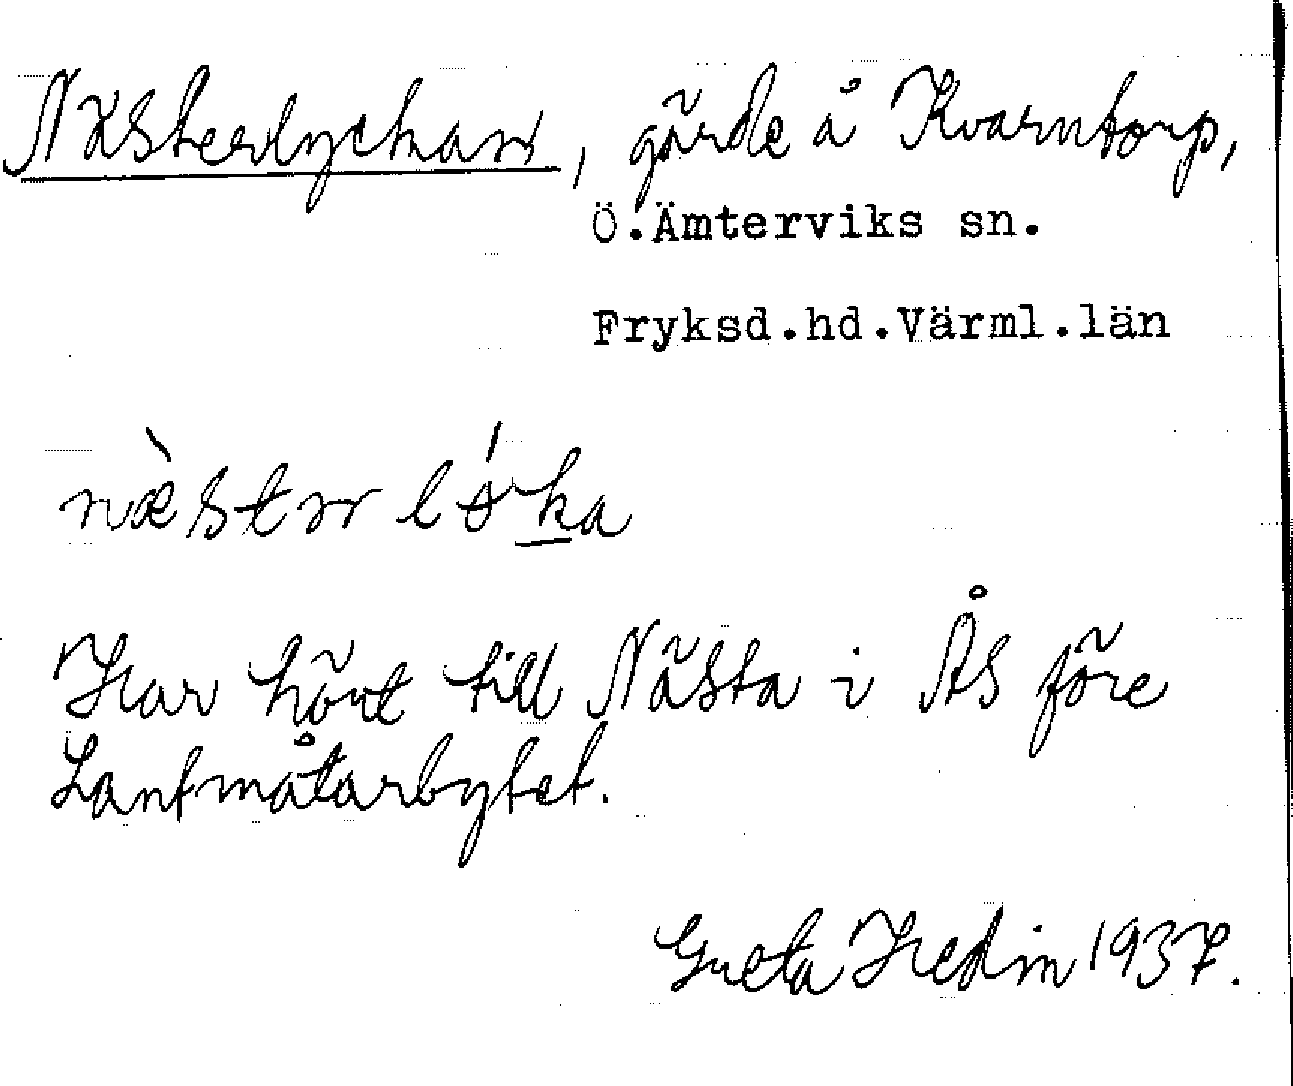 Nästerlyckan, gärde å Kvarntorp,
Ö.Ämterviks sn.
Fryksd.hd.Värml.län
Har hört till Nästa i Ås före
Lantmätarbytet.
Greta Hedin 1937.